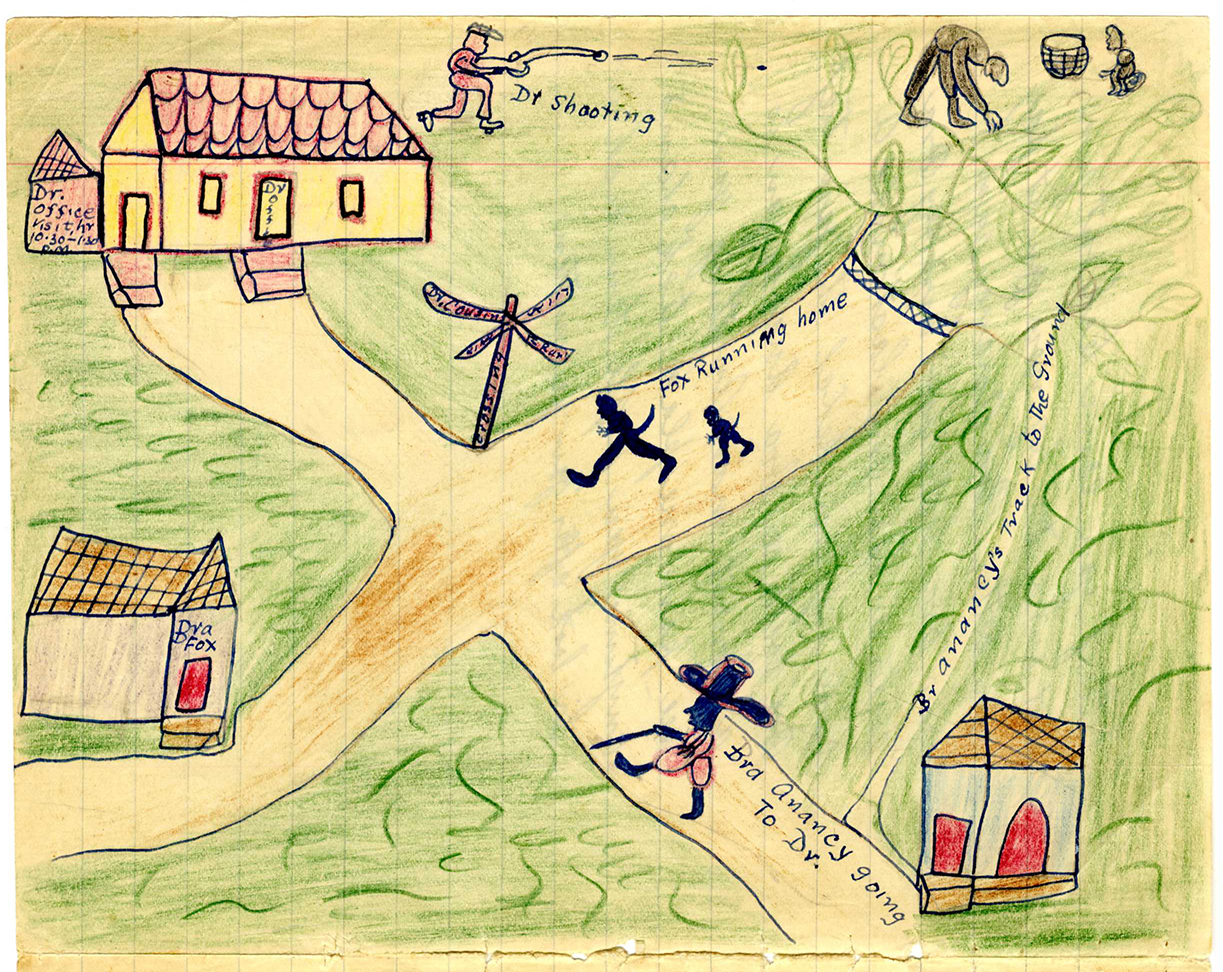 Dr Shooting
Dr.
Office
Visit, hr
10.30-1.30
P.M
Dr
Fox Running home
crossing
Br anancy's Track to the Ground
Bra
Fox
Bra Anancy going
To Dr.